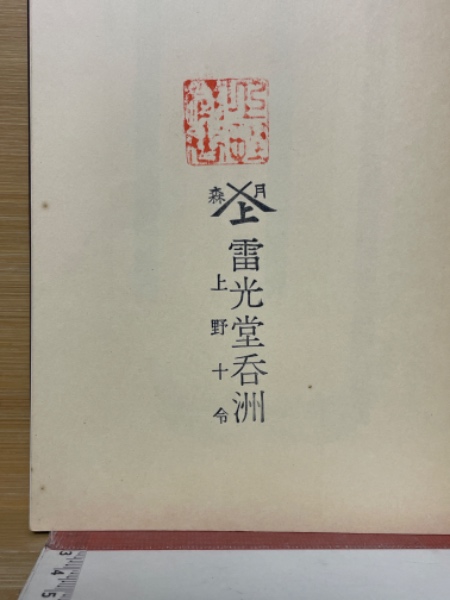 森 上 月
雷光堂呑洲
上野十令
3 4 5